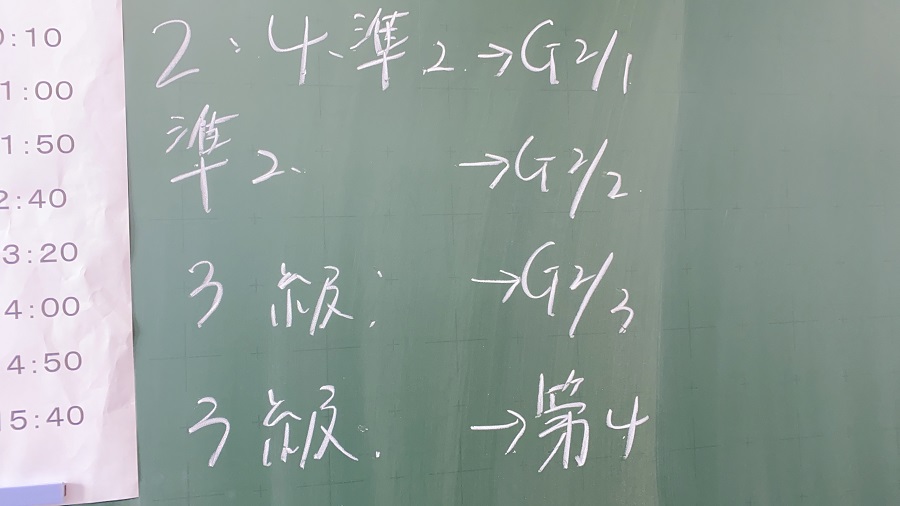 2:4、準2.→G2/1
準2、→G2/2.
3級:→G2/3
3級:→第4
:10
1:00
1:50
2:40
3:20
4:00
4:50
5:40